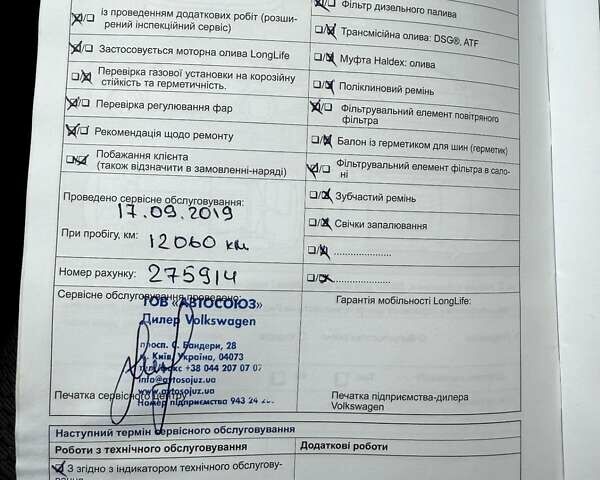 із проведенням додаткових робіт (розши-
рений інспекційний сервіс)
Застосовується моторна олива LongLife
Перевірка газової установки на корозійну
стійкість та герметичність.
Перевірка регулювання фар
Рекомендація щодо ремонту
Побажання клієнта
(також відзначити в замовленні-наряді)
Проведено сервісне обслуговування:
17.09.2019
При пробігу, км: 12060 км
Номер рахунку: 275914
Сервісне обслуговування проведено:
ТОВ "АВТОСОЮЗ"
Дилер Volkswagen
просп. С. Бандери, 28
м. Київ, Україна, 04073
тел/факс +38 044 207 07 07
info@avtosojuz.ua
www.avtosojuz.ua
Номер підприємства 943 24
Печатка сервісного центру
Фільтр дизельного палива
Трансмісійна олива: DSG®, ATF
Муфта Haldex: олива
Поліклиновий ремінь
Фільтрувальний елемент повітряного
фільтра
Балон із герметиком для шин (герметик)
Фільтрувальний елемент фільтра в сало-
ні
Зубчастий ремінь
Свічки запалювання
Гарантія мобільності LongLife:
Печатка підприємства-дилера
Volkswagen
Наступний термін сервісного обслуговування
Роботи з технічного обслуговування
Додаткові роботи
З згідно з індикатором технічного обслугову-
вання